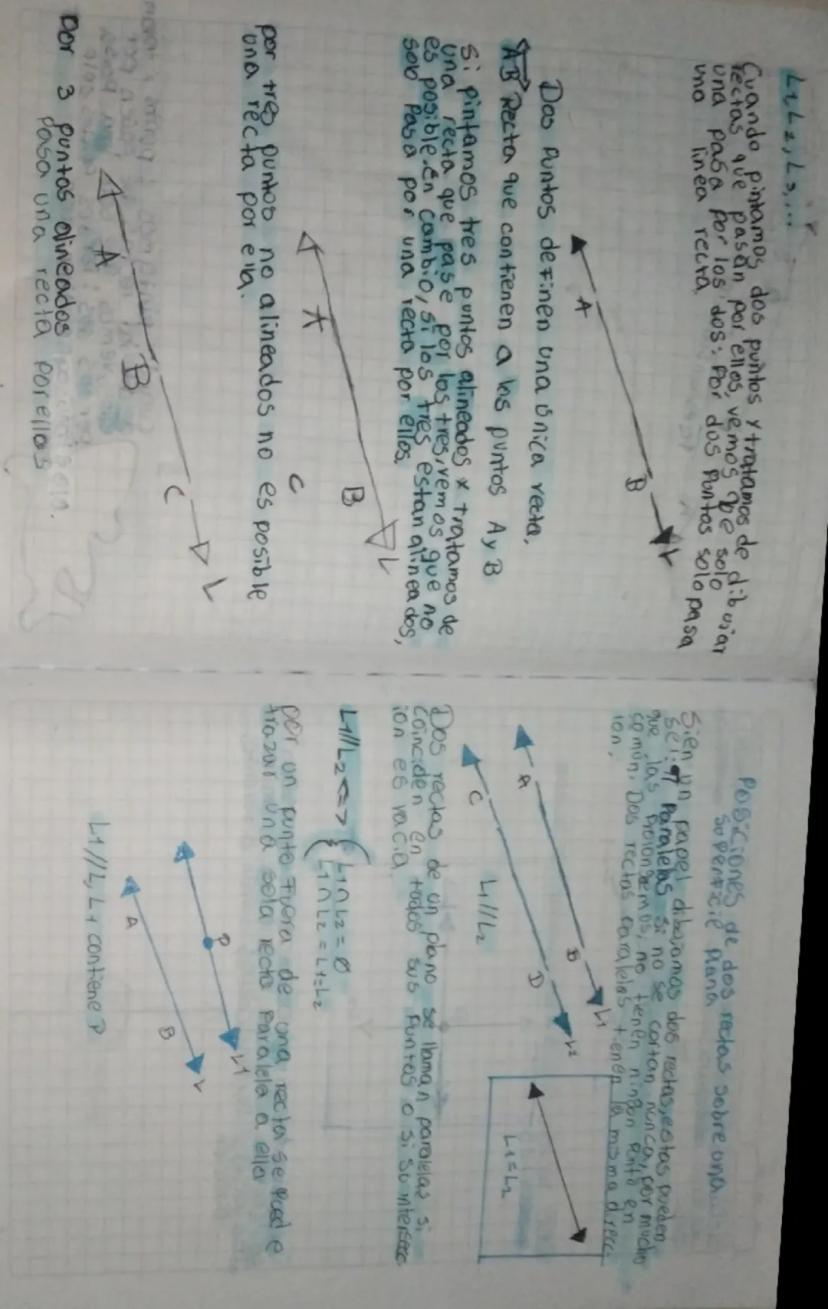 L1 L2, L3,...
Cuando pintamos dos puntos y tratamos de dibujar
rectas que pasan por ellos, vemos que solo
una pasa por los dos: Por dos Puntos solo pasa
una linea recta
A B L
Dos Puntos definen una única recta.
AB Recta que contienen a los puntos A y B
Si pintamos tres puntos alineados y tratamos de
una recta que pase por los tres, vemos que no
es posible. En cambio, si los tres estan alineados,
solo Pasa por una recta por ellos.
A B L
C
por tres puntos no alineados no es posible
una recta por ella.
A B C L
Por 3 puntos alineados
Pasa una recta por ellos
Posiciones de dos rectas sobre una
superficie Plana
Si en un papel dibujamos dos rectas, estas pueden
ser: Paralelas si no se cortan nunca, por mucho
que las prolonguemos, no tienen ningun Punto en
común. Dos rectas Paralelas tienen la misma direcc
ion.
A B L1
C D L2
L1//L2
L1=L2
Dos rectas de un plano se llaman paralelas si
coinciden en todos sus Puntos o si su intersecc
ion es vacia.
L1//L2 <=> { L1∩L2=Ø
L1∩L2=L1=L2
por un punto Fuera de una recta se puede
trazar una sola recta Paralela a ella
P L1
A B L
L1//L, L1 contiene P